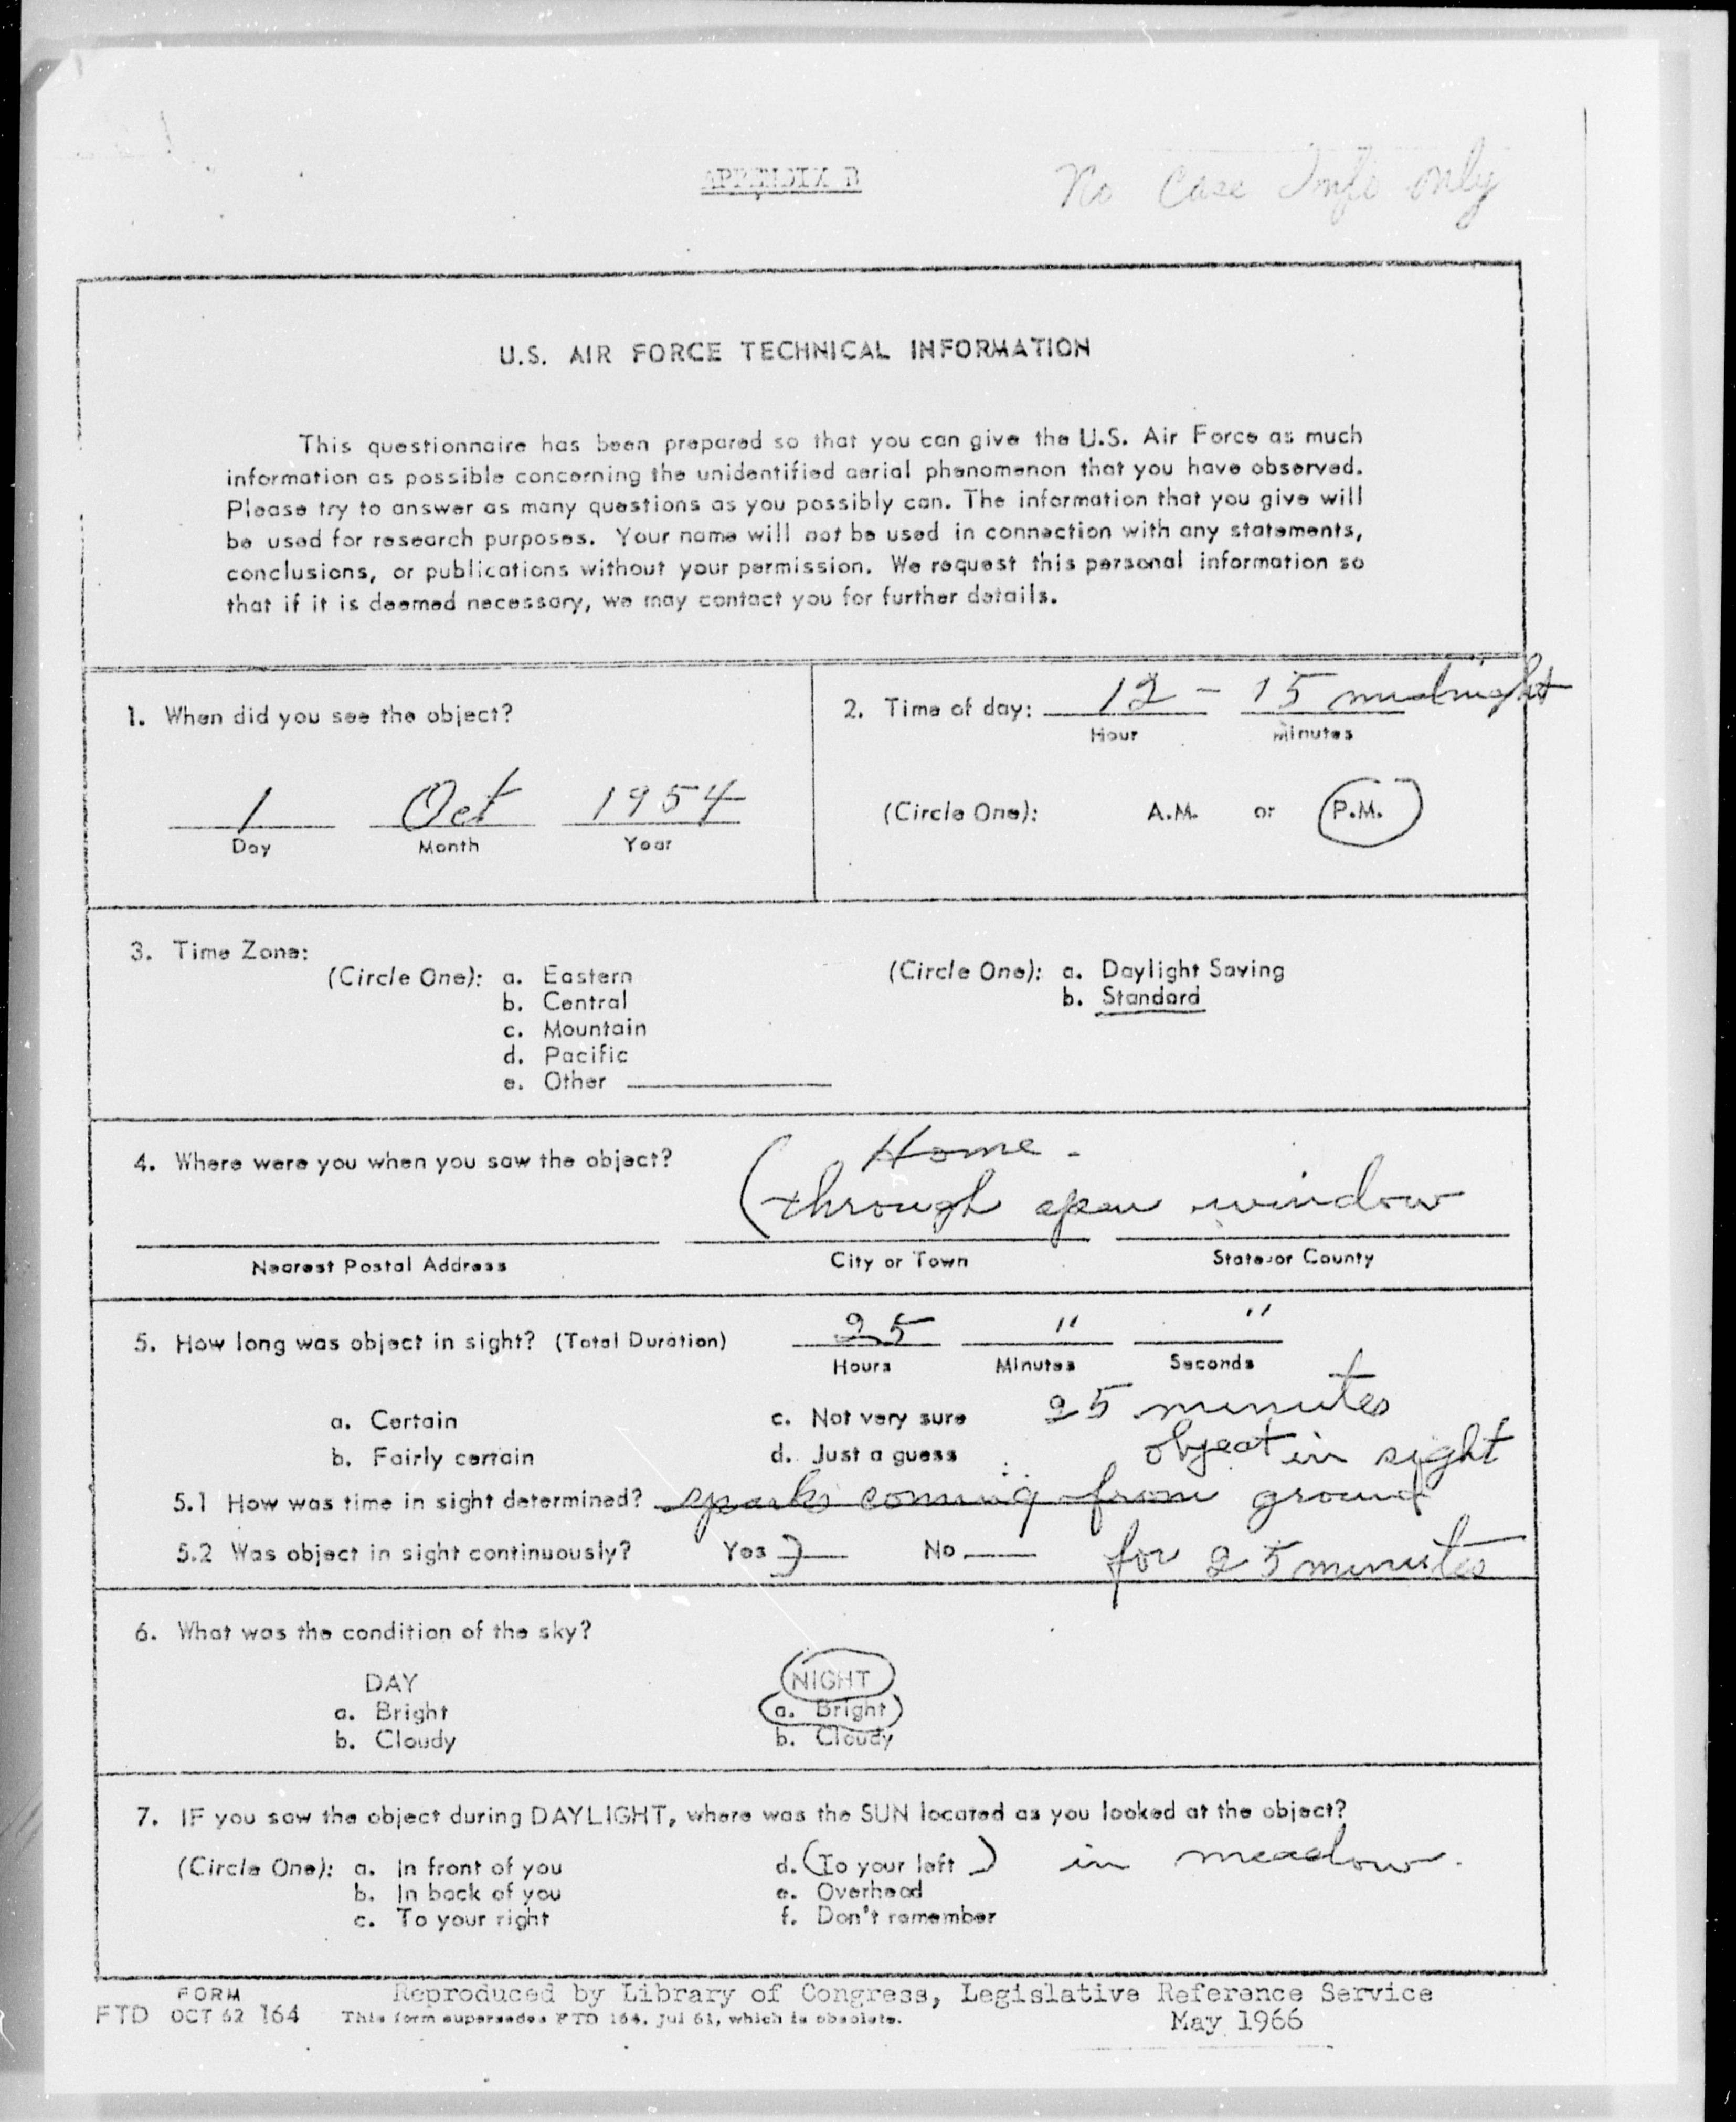 APPENDIX B
No Case Info only
U.S. AIR FORCE TECHNICAL INFORMATION
This questionnaire has been prepared so that you can give the U.S. Air Force as much
information as possible concerning the unidentified aerial phenomenon that you have observed.
Please try to answer as many questions as you possibly can. The information that you give will
be used for research purposes. Your name will not be used in connection with any statements,
conclusions, or publications without your permission. We request this personal information so
that if it is deemed necessary, we may contact you for further details.
1. When did you see the object?
1 Oct 1954
Day Month Year
2. Time of day: 12 - 15 midnight
Hour Minutes
(Circle One): A.M. or P.M.
3. Time Zone:
(Circle One): a. Eastern
b. Central
c. Mountain
d. Pacific
e. Other
(Circle One): a. Daylight Saving
b. Standard
4. Where were you when you saw the object?
Home -
(through open window
Nearest Postal Address City or Town State or County
5. How long was object in sight? (Total Duration) 25 " "
Hours Minutes Seconds
a. Certain c. Not very sure 25 minutes
b. Fairly certain d. Just a guess object in sight
5.1 How was time in sight determined? sparks coming from ground
5.2 Was object in sight continuously? Yes No for 25 minutes
6. What was the condition of the sky?
DAY NIGHT
a. Bright a. Bright
b. Cloudy b. Cloudy
7. IF you saw the object during DAYLIGHT, where was the SUN located as you looked at the object?
(Circle One): a. In front of you d. (To your left) in meadow.
b. In back of you e. Overhead
c. To your right f. Don't remember
FORM
FTD OCT 62 164
Reproduced by Library of Congress, Legislative Reference Service
This form supersedes FTD 164, Jul 61, which is obsolete.
May 1966